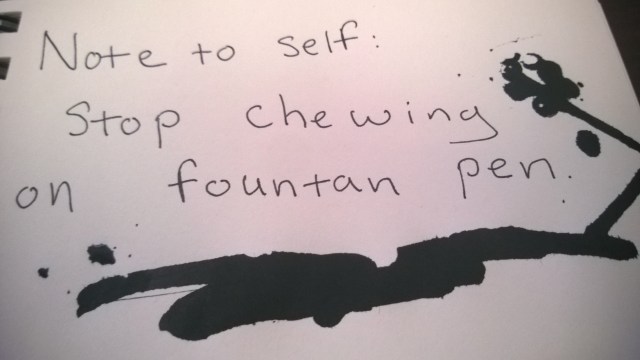 Note to self:
Stop chewing
on fountan pen.